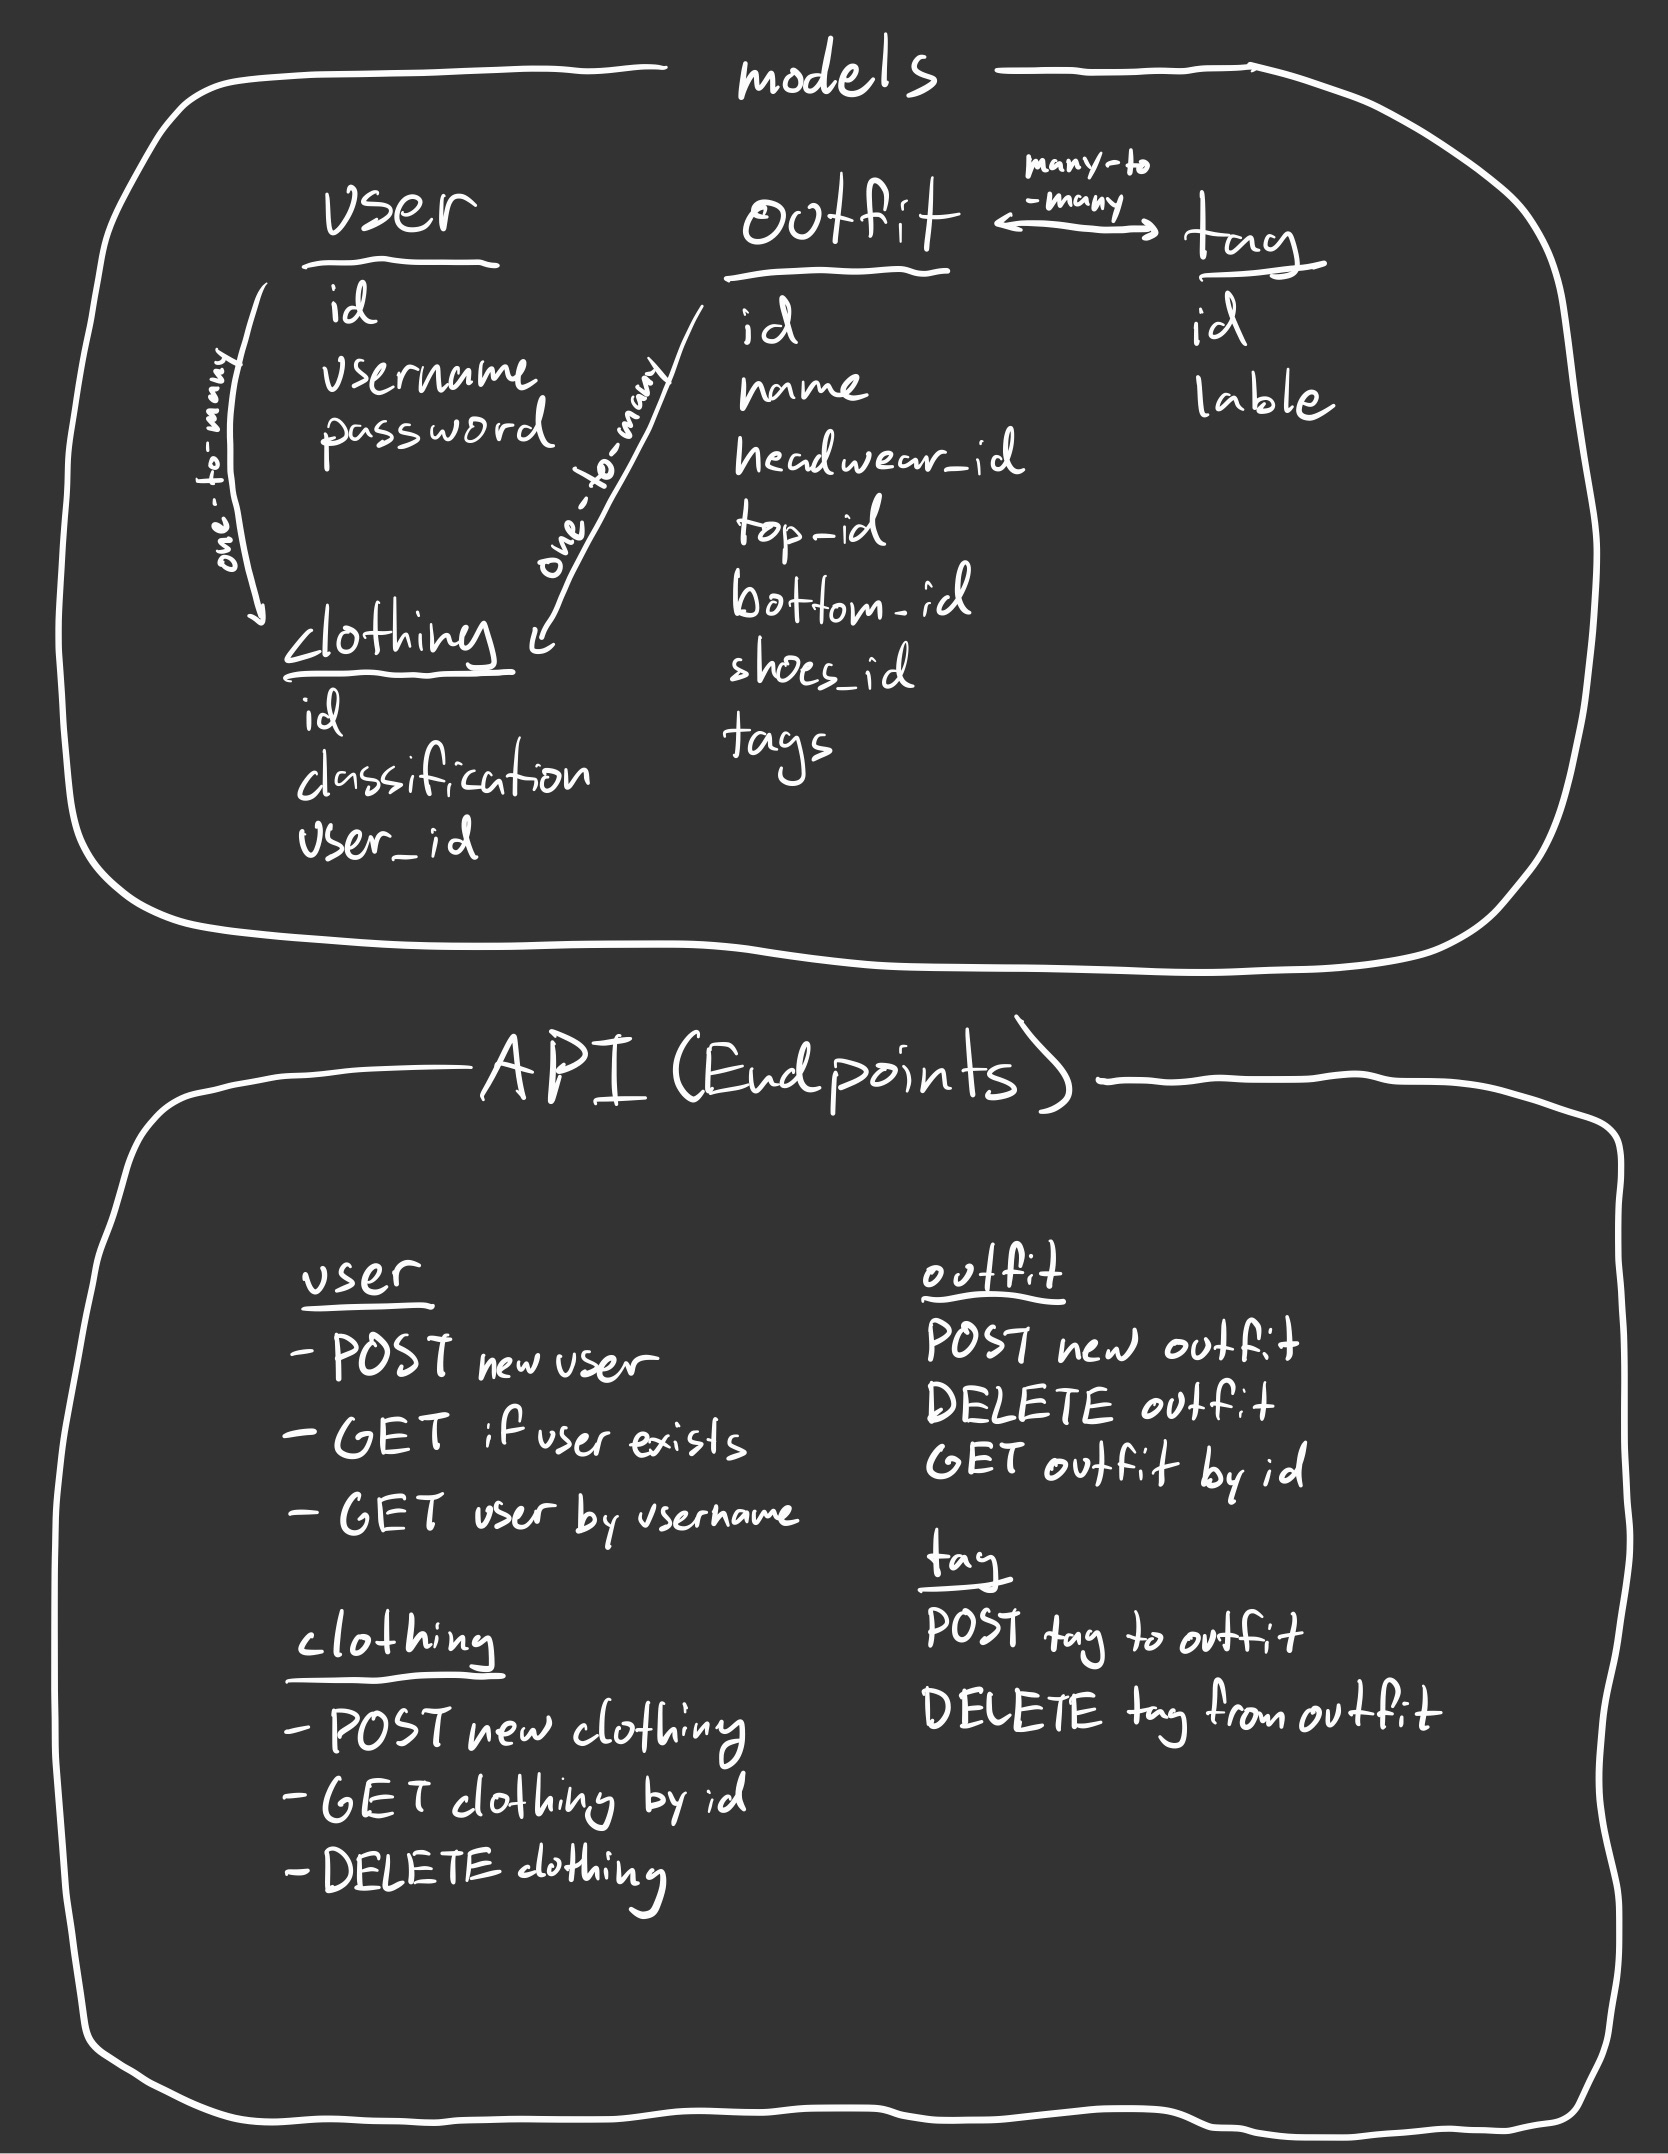 models
user
id
username
password
one-to-many
clothing
id
classification
user_id
one-to-many
outfit
id
name
headwear_id
top-id
bottom-id
shoes_id
tags
many-to
-many
tag
id
lable
API (Endpoints)
user
- POST new user
- GET if user exists
- GET user by username
clothing
- POST new clothing
- GET clothing by id
- DELETE clothing
outfit
POST new outfit
DELETE outfit
GET outfit by id
tag
POST tag to outfit
DELETE tag from outfit